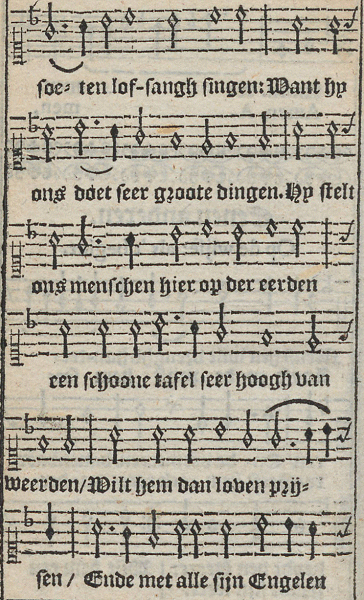 soe⸗ ten lof-sangh singen: Want hy
ons doet seer groote dingen. Hy stelt
ons menschen hier op der eerden
een schoone tafel seer hoogh van
weerden/Wilt hem dan loven prij⸗
sen / Ende met alle sijn Engelen